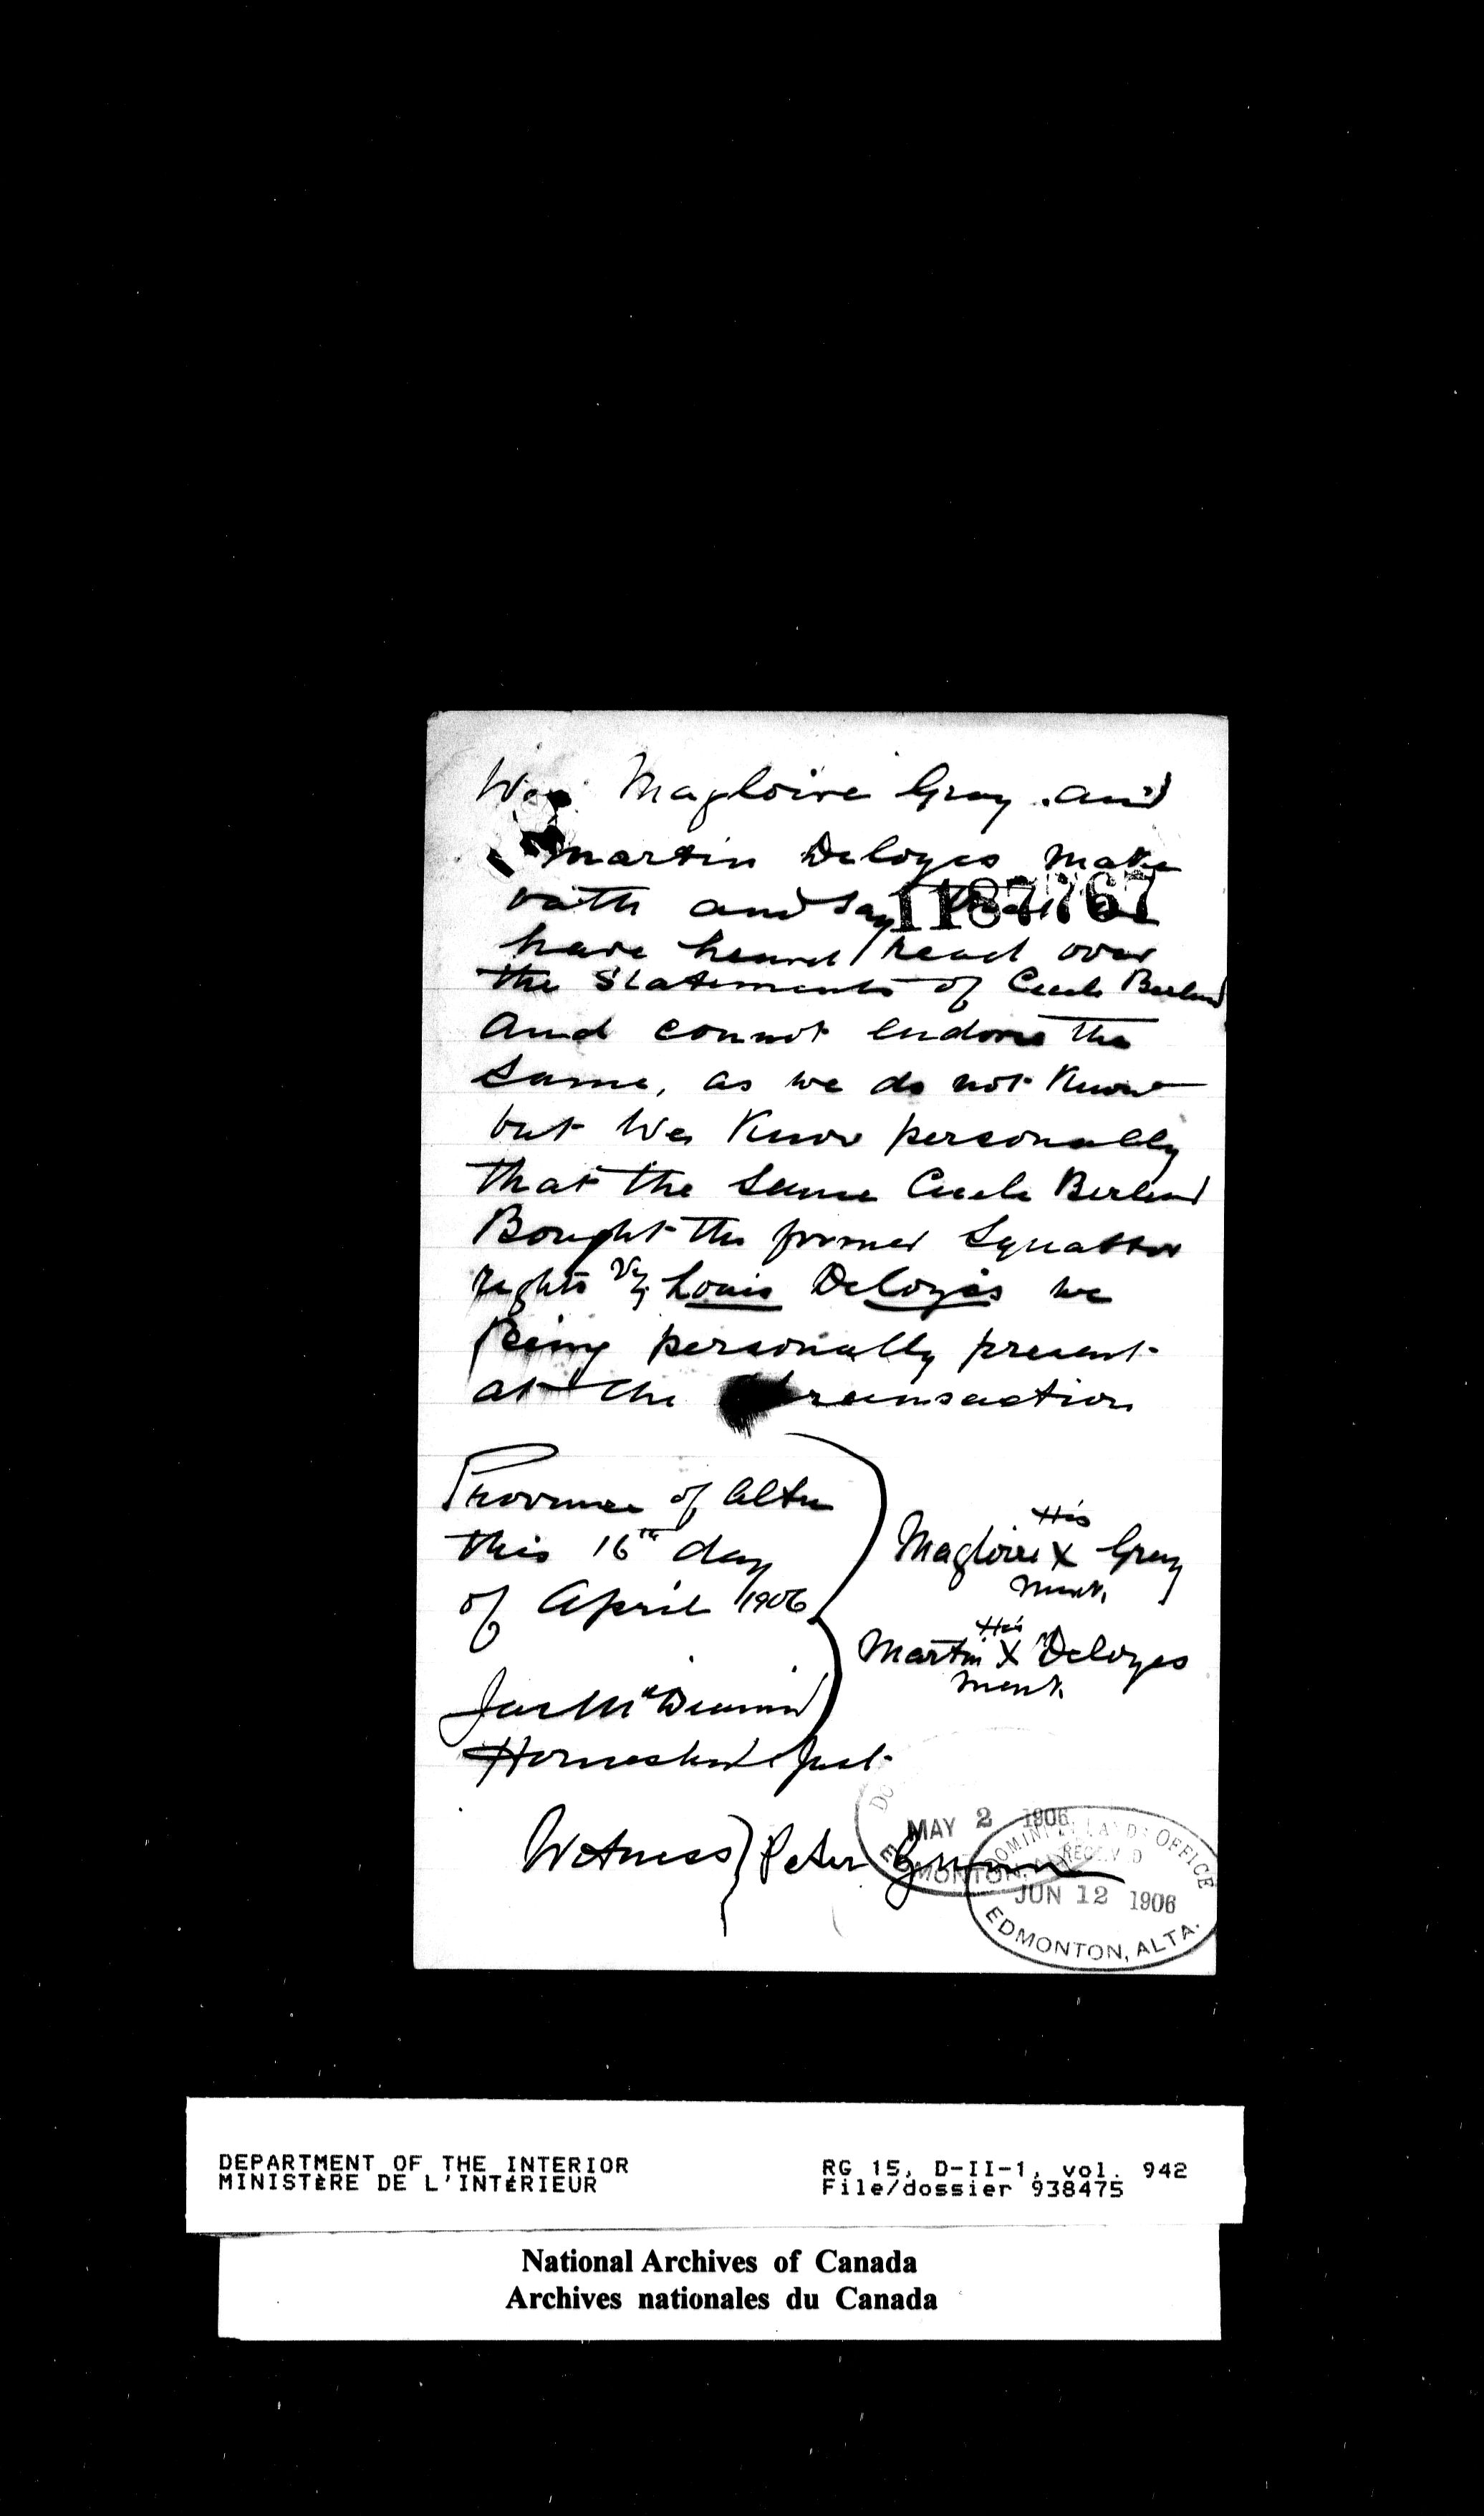 We Magloire Gray and
Martin Deloyes make
oath and say that we
1187767
have heard read over
the Statements of Cecile Berland
and connot endorse the
same, as we do not know
but We Know personally
that the same Cecile Berland
Bought the former Squatter
rights viz Louis Deloyes we
Being personally present
at the transaction
Province of Alta
this 16th day
of April 1906
His
Magloire X Gray
mark
His
Martin X Deloyes
mark
Jas
Homestead Inst
Witness } Peter Gunn
MAY 2 1906
EDMONTON, ALTA.
DOMINION LANDS OFFICE
RECEIVED
JUN 12 1906
EDMONTON, ALTA.
DEPARTMENT OF THE INTERIOR
MINISTÈRE DE L'INTÉRIEUR
RG 15, D-II-1, vol. 942
File/dossier 938475
National Archives of Canada
Archives nationales du Canada